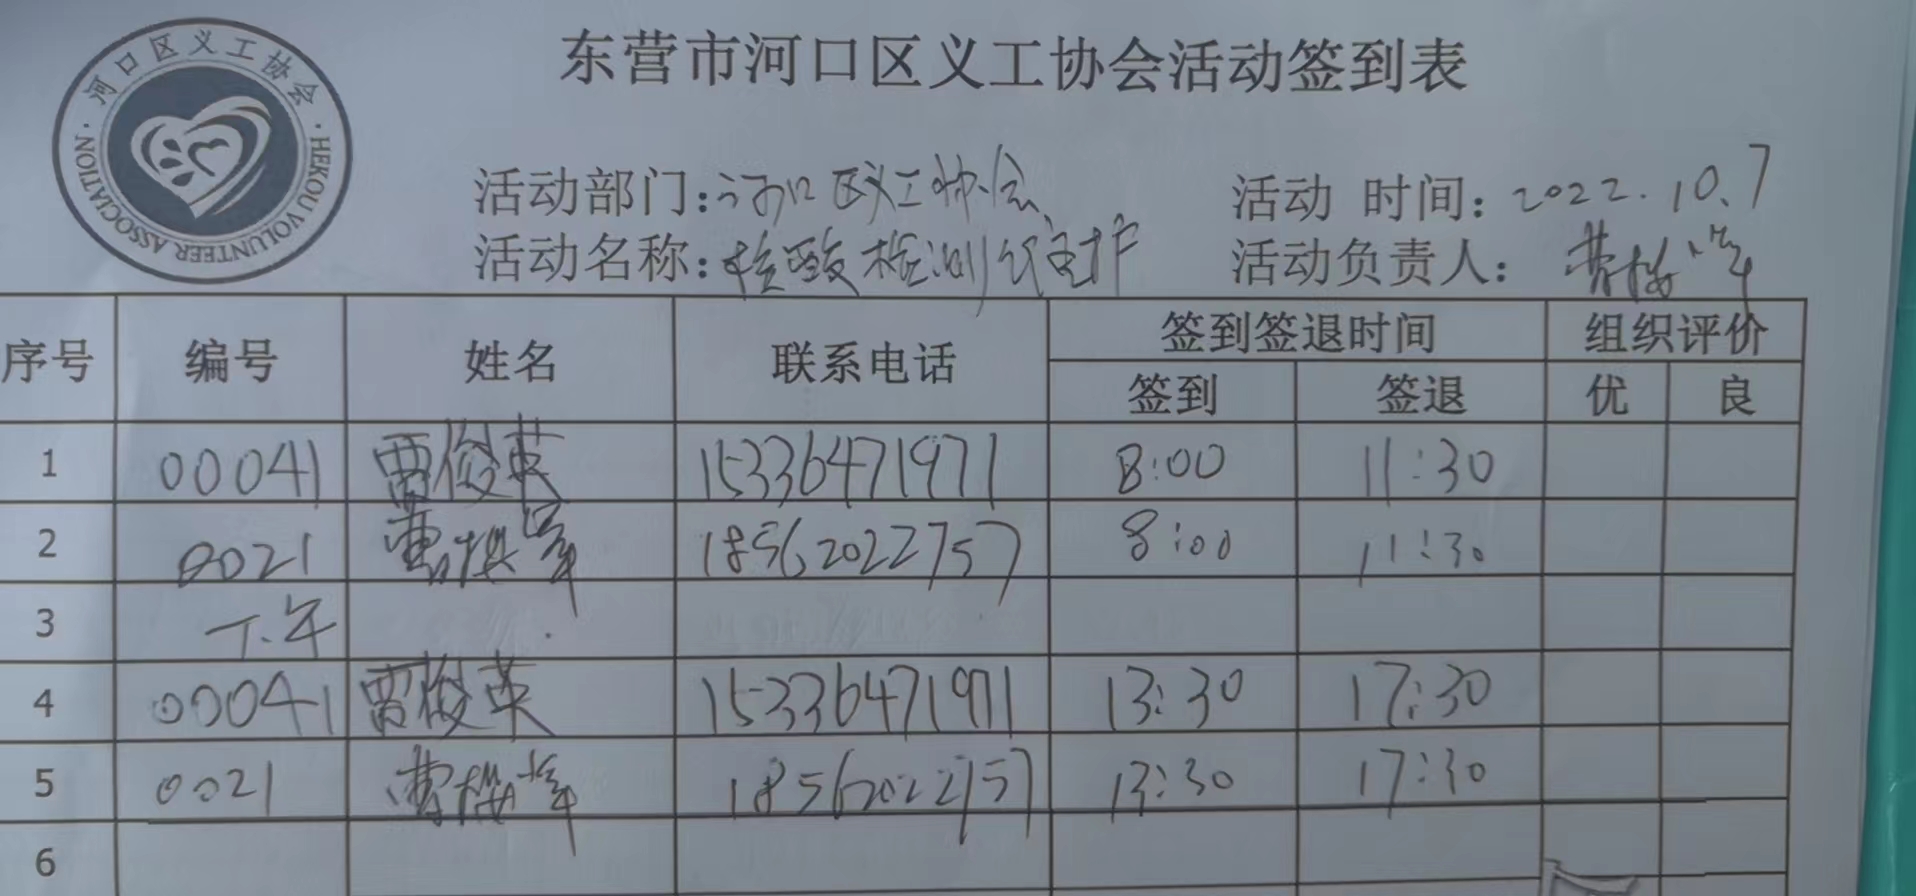 河口区义工协会
HEKOU VOLUNTEER ASSOCIATION
东营市河口区义工协会活动签到表
活动部门:河口区义工协会 活动 时间: 2022.10.7
活动名称:核酸检测维护 活动负责人:
序号 编号 姓名 联系电话 签到签退时间 组织评价
签到 签退 优 良
1 00041 贾俊英 15336471971 8:00 11:30
2 0021 18562022757 8:00 11:30
3 下午
4 00041 贾俊英 15336471971 13:30 17:30
5 0021 18562022757 13:30 17:30
6